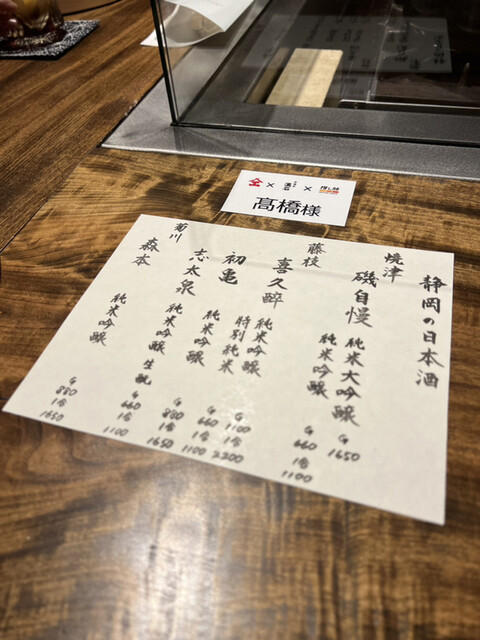 髙橋様
静岡の日本酒
焼津
磯自慢 純米大吟醸 G 1650
純米吟醸 G 660 1合 1100
藤枝
喜久酔 純米吟醸 G 1100 1合 2200
特別純米 G 660 1合 1100
初亀 純米吟醸 G 880 1合 1650
志太泉 純米吟醸 生酛 G 660 1合 1100
菊川
森本 純米吟醸 G 880 1合 1650